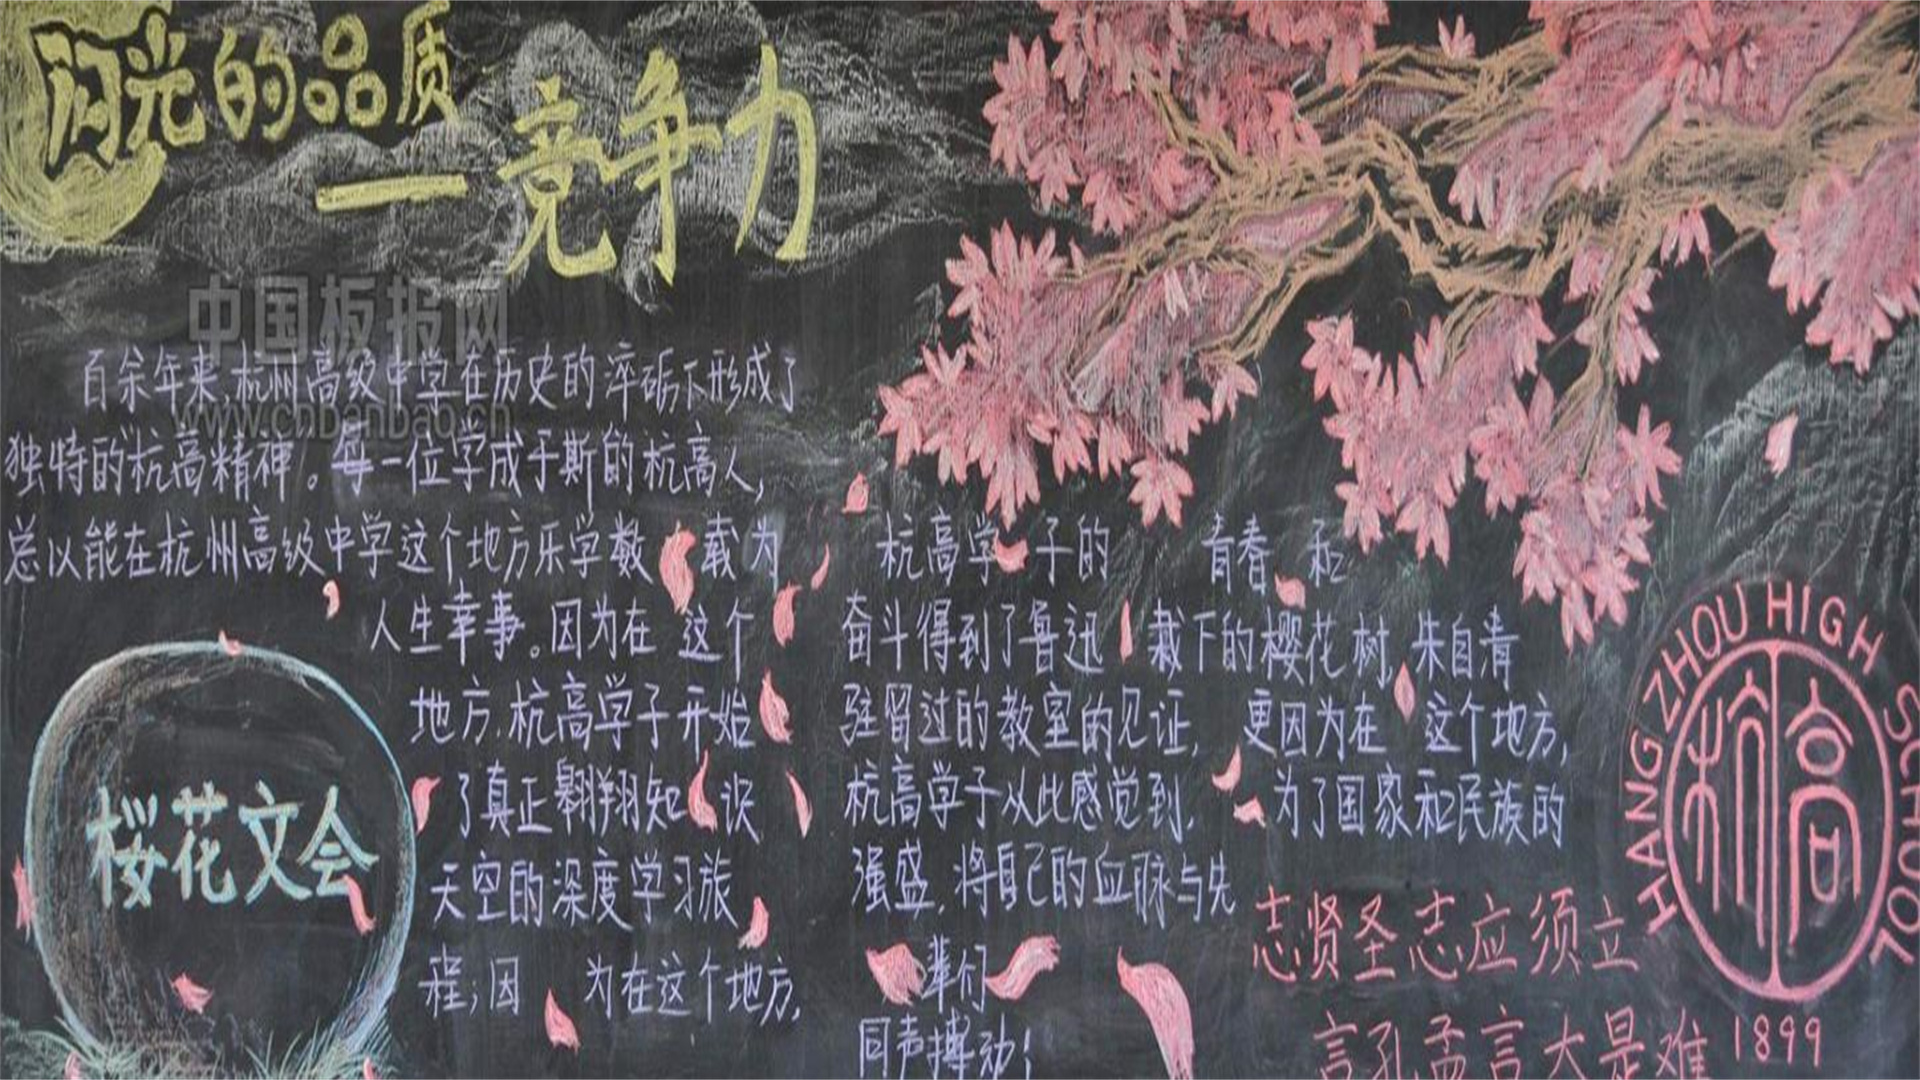 闪光的品质
—竞争力
中国板报网
www.cnbanbao.cn
百余年来,杭州高级中学在历史的淬砺下形成了
独特的"杭高精神"。每一位学成于斯的杭高人,
总以能在杭州高级中学这个地方乐学数载为
人生幸事。因为在这个
地方,杭高学子开始
了真正翱翔知识
天空的深度学习旅
程;因为在这个地方,
杭高学子的青春和
奋斗得到了鲁迅栽下的樱花树,朱自清
驻留过的教室的见证,更因为在这个地方,
杭高学子从此感觉到,为了国家和民族的
强盛,将自己的血脉与先
辈们
同声搏动!
桜花文会
志贤圣志应须立
言孔孟言大是难
HANG ZHOU HIGH SCHOOL
杭高
1899